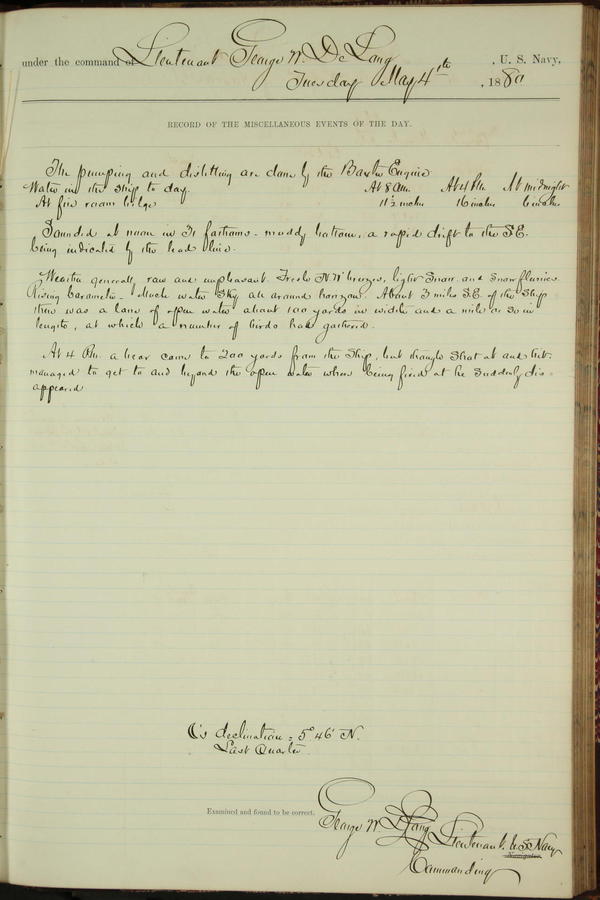 under the command of Lieutenant George W. De Long, U. S. Navy.
Tuesday May 4th, 1880
RECORD OF THE MISCELLANEOUS EVENTS OF THE DAY.
The pumping and distilling are done by the Baxter Engine
Water in the ship to day. At 8 AM. At 4 PM. At midnight
At fire room bilge 11½ inches 16 inches 6 inches
Sounded at noon in fathoms - muddy bottom, a rapid drift to the SE.
being indicated by the lead line.
Weather generally raw and unpleasant. Fresh N.W. breezes, light snow and snow flurries.
Rising barometer. Much water sky all around horizon. About 3 miles SE. of the ship
there was a lane of open water about 100 yards in width and a mile or so in
length, at which a number of birds had gathered.
At 4 PM. a bear came to 200 yards from the ship, but though shot at and hit.
managed to get to and beyond the open water when being fired at he suddenly dis-
appeared
☾'s declination = 5° 46' N.
Last Quarter.
Examined and found to be correct.
George W. De Long Lieutenant U.S. Navy
Navigator.
Commanding